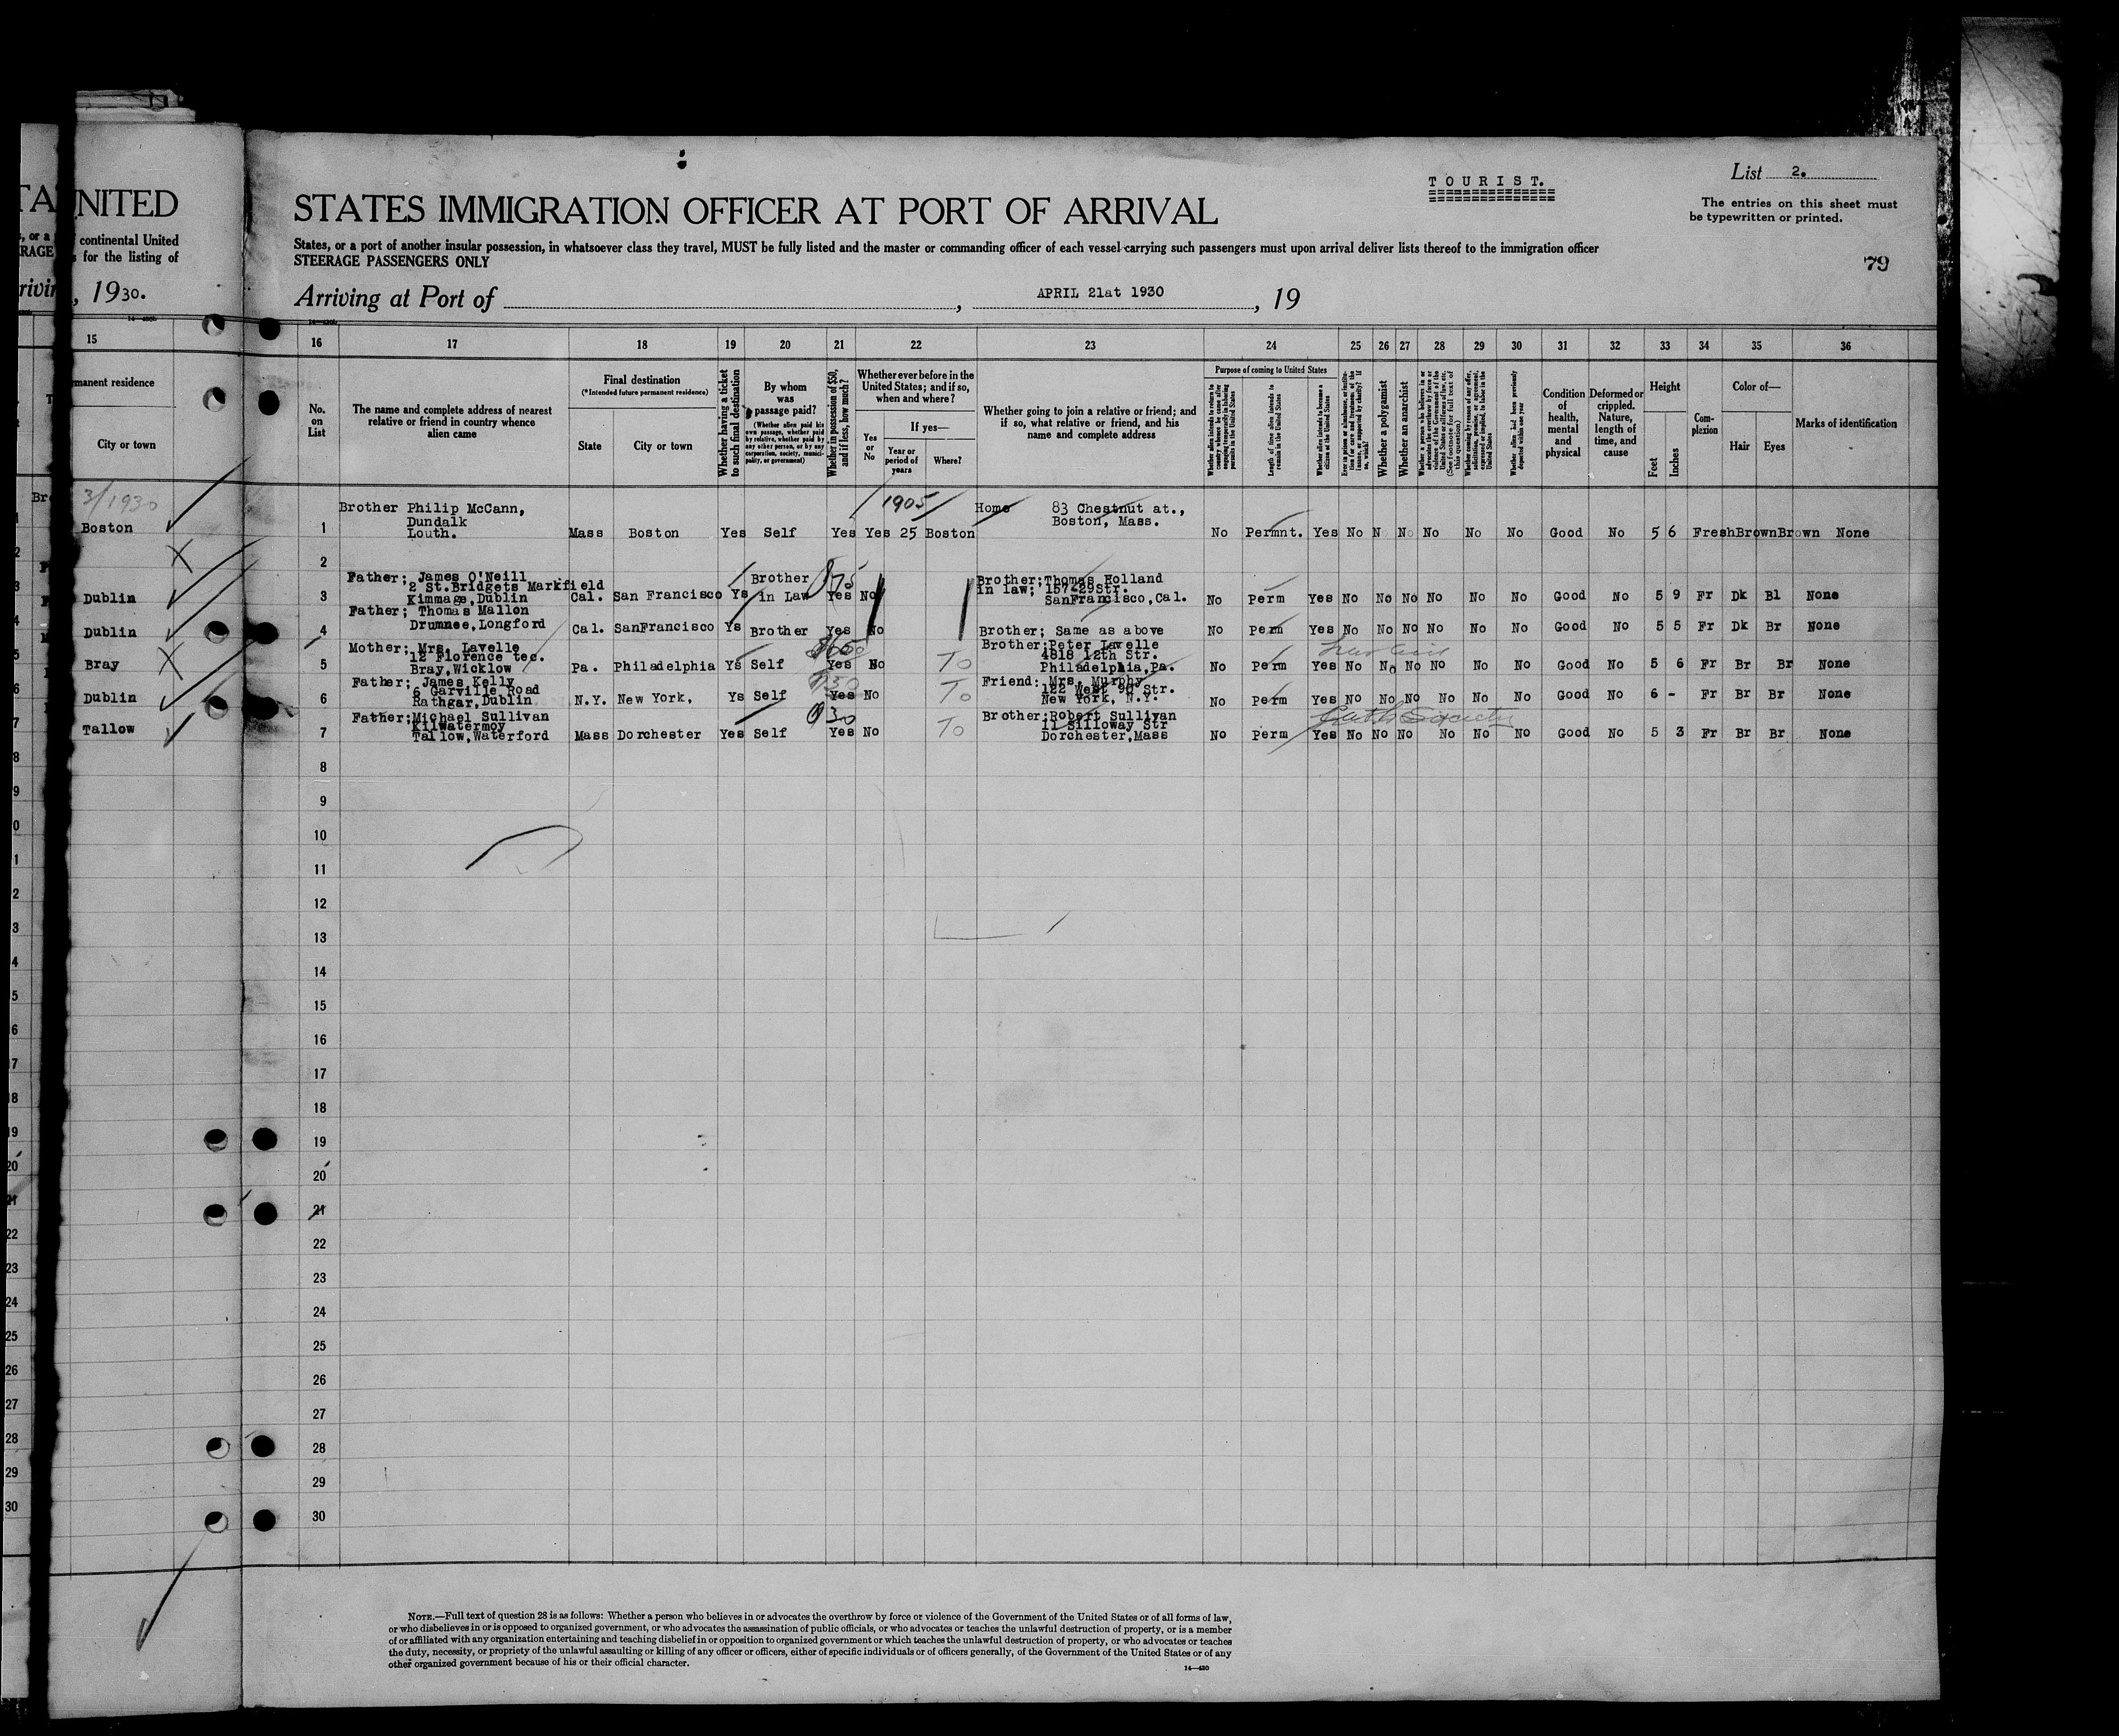 TA
NITED
continental United
RAGE
for the listing of
, 1930.
15
manent residence
City or town
3/1930
Boston
Dublin
Dublin
Bray
Dublin
Tallow
TOURIST.
List 2.
STATES IMMIGRATION OFFICER AT PORT OF ARRIVAL
The entries on this sheet must
be typewritten or printed.
States, or a port of another insular possession, in whatsoever class they travel, MUST be fully listed and the master or commanding officer of each vessel carrying such passengers must upon arrival deliver lists thereof to the immigration officer
STEERAGE PASSENGERS ONLY
79
Arriving at Port of , APRIL 21at 1930 , 19
16 17 18 19 20 21 22 23 24 25 26 27 28 29 30 31 32 33 34 35 36
No. on List
The name and complete address of nearest
relative or friend in country whence
alien came
Final destination
(*Intended future permanent residence)
State City or town
Whether having a ticket
to such final destination
By whom
was
passage paid?
(Whether alien paid his
own passage, whether paid
by relative, whether paid by
any other person, or by any
corporation, society, munici-
pality, or government)
Whether in possession of $50,
and if less, how much?
Whether ever before in the
United States; and if so,
when and where?
Yes or No
If yes—
Year or
period of
years
Where?
Whether going to join a relative or friend; and
if so, what relative or friend, and his
name and complete address
Purpose of coming to United States
Length of time alien intends to
remain in the United States
Whether alien intends to become a
citizen of the United States
Whether a polygamist
Whether an anarchist
Condition
of
health,
mental
and
physical
Deformed or
crippled.
Nature,
length of
time, and
cause
Height
Feet Inches
Com-
plexion
Color of—
Hair Eyes
Marks of identification
1905
Brother Philip McCann, Home 83 Chestnut at.,
Dundalk Boston, Mass.
1 Louth. Mass Boston Yes Self Yes Yes 25 Boston No Permnt. Yes No N No No No No Good No 5 6 Fresh Brown Brown None
2
Father; James O'Neill Brother $75 Brother;Thomas Holland
2 St.Bridgets Markfield in law; 157-29Str.
3 Kimmage,Dublin Cal. San Francisco Ys in Law Yes No SanFrancisco,Cal. No Perm Yes No No No No No No Good No 5 9 Fr Dk Bl None
Father; Thomas Mallon
4 Drumnee,Longford Cal. SanFrancisco Ys Brother Yes No Brother; Same as above No Perm Yes No No No No No No Good No 5 5 Fr Dk Br None
Mother; Mrs. Lavelle Brother:Peter Lavelle
12 Florence tec. 4818 12th Str.
5 Bray,Wicklow Pa. Philadelphia Ys Self Yes No To Philadelphia,Pa. No Perm Yes No No No No No No Good No 5 6 Fr Br Br None
Father; James Kelly Friend: Mrs. Murphy
6 Garville Road 122 West 90 Str.
6 Rathgar,Dublin N.Y. New York, Ys Self Yes No To New York, N.Y. No Perm Yes No No No No No No Good No 6 - Fr Br Br None
Father;Michael Sullivan $30 Brother:Robert Sullivan
Kilwatermoy 11 Silloway Str
7 Tallow,Waterford Mass Dorchester Yes Self Yes No To Dorchester,Mass No Perm Yes No No No No No No Good No 5 3 Fr Br Br None
8
9
10
11
12
13
14
15
16
17
18
19
20
21
22
23
24
25
26
27
28
29
30
NOTE.—Full text of question 28 is as follows: Whether a person who believes in or advocates the overthrow by force or violence of the Government of the United States or of all forms of law,
or who disbelieves in or is opposed to organized government, or who advocates the assassination of public officials, or who advocates or teaches the unlawful destruction of property, or is a member
of or affiliated with any organization entertaining and teaching disbelief in or opposition to organized government or which teaches the unlawful destruction of property, or who advocates or teaches
the duty, necessity, or propriety of the unlawful assaulting or killing of any officer or officers, either of specific individuals or of officers generally, of the Government of the United States or of any
other organized government because of his or their official character.
14—430